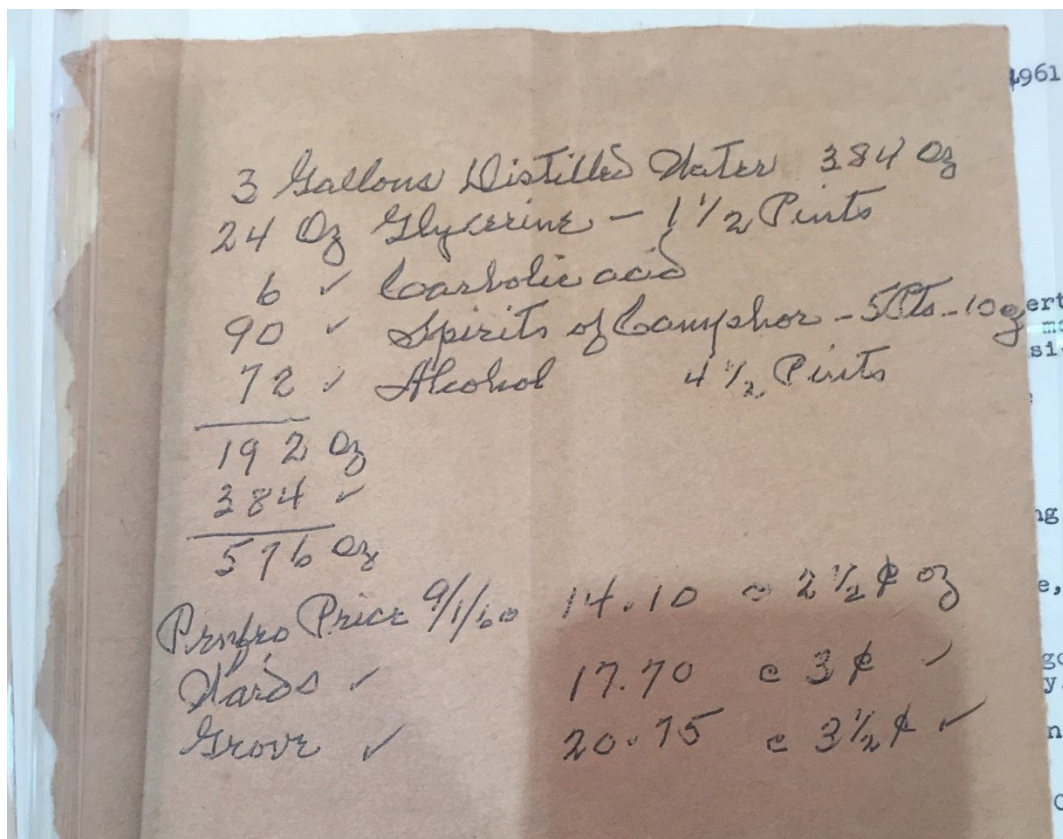 1961
3 Gallons Distilled Water 384 Oz
24 Oz Glycerine - 1 1/2 Pints
6 ✓ Carbolic acid
90 ✓ Spirits of Camphor - 5 Pts - 10 oz
72 ✓ Alcohol 4 1/2 Pints
192 Oz
384 ✓
576 Oz
Renfro Price 9/1/60 14.10 @ 2 1/2 ¢ oz
Wards ✓ 17.70 @ 3 ¢ ✓
Grove ✓ 20.75 @ 3 1/2 ¢ ✓